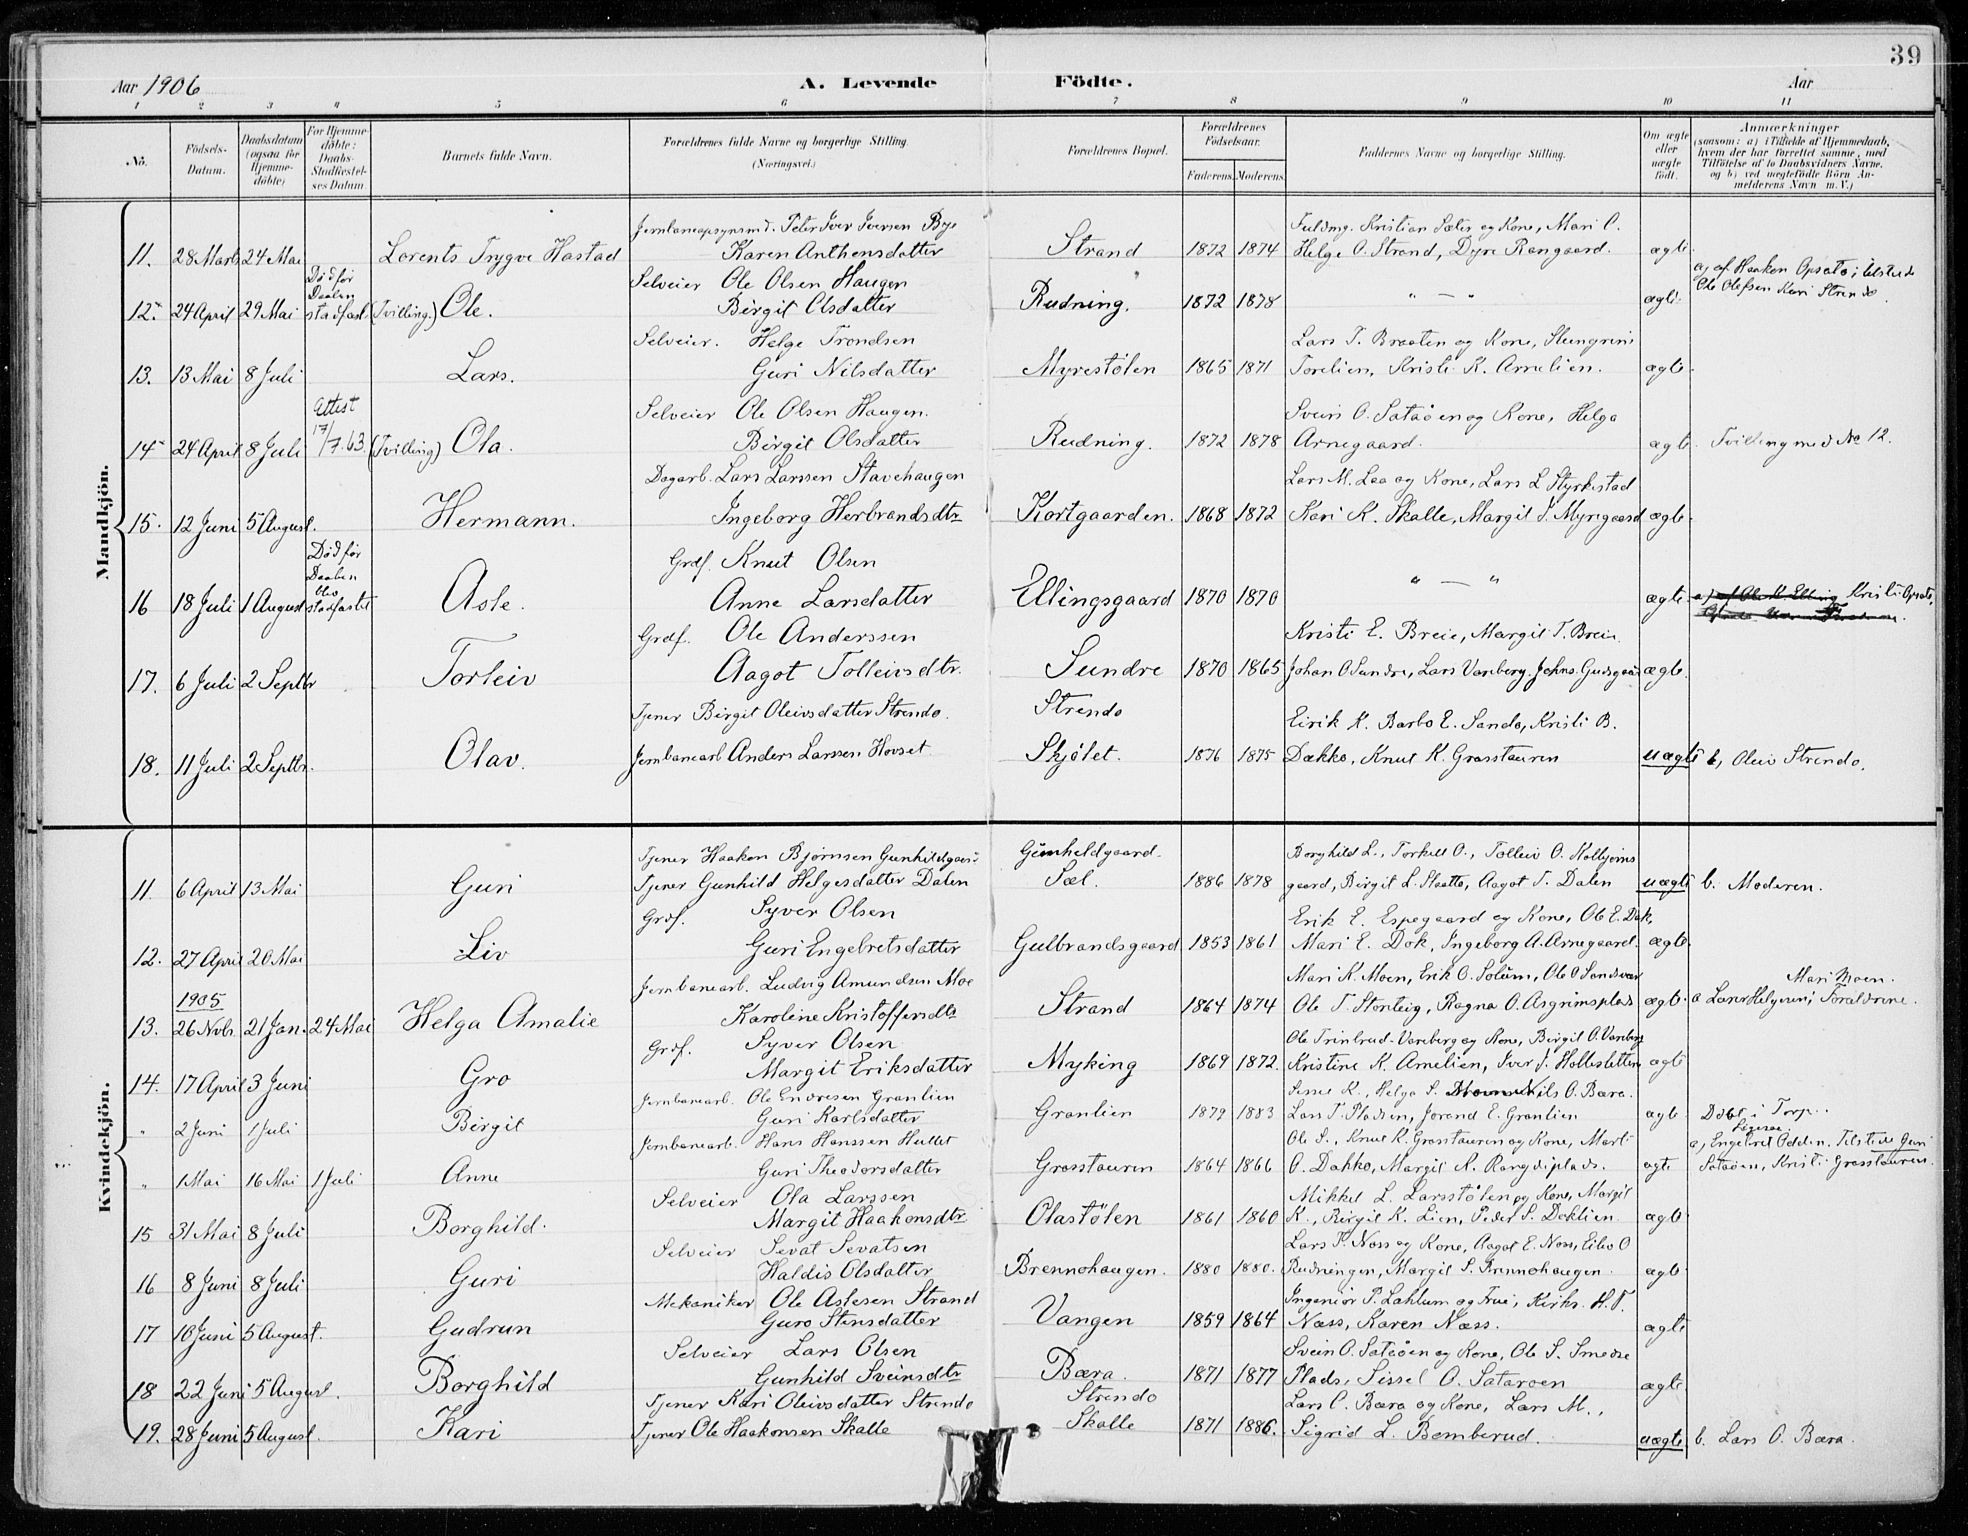 39
Aar 1906 A. Levende Födte. Aar
1 2 3 4 5 6 7 8 9 10 11
No. Födsels-Datum. Daabsdatum (ogsaa for Hjemme-döbte) For Hjemme-döbte: Daabs-Stadfæstel-ses Datum Barnets fulde Navn. Forældrenes fulde Navne og borgerlige Stilling. (Næringsvei.) Forældrenes Bopæl. Forældrenes Födselsaar. Faderens Moderens. Faddernes Navne og borgerlige Stilling. Om ægte eller uægte födt. Anmærkninger (saasom: a) i Tilfælde af Hjemmedaab, hvem der har forrettet samme, med Tilföielse af to Daabsvidners Navne, og b) ved uægtefödte Börn Anmelderens Navn m. V.)
Mandkjön.
Jernbaneopsynsmd. Peter Iver Iversen Bye Fuldmg. Kristian Sæter og Kone, Mari O.
11. 28 Marts 24 Mai Lorents Trygve Hastad Karen Anthensdatter Strand 1872 1874 Helge O. Strand, Dyre Rangaard. ægte
Død før Daaben Selveier Ole Olsen Haugen a, af Haakon Opsata; tilstede
12. 24 April 29 Mai stadfæst. (Tvilling.) Ole. Birgit Olsdatter Rudning. 1872 1878 " — " ægte. Ole Olefsen Kari Strendo.
Selveier. Helge Trondsen Lars T. Braaten og Kone, Steingrim
13. 13 Mai 8 Juli Lars. Guri Nilsdatter Myrestølen 1865 1871 Torelien, Kristi K. Arnelien. ægte
Attest Selveier Ole Olsen Haugen. Svein O. Sataøen og Kone, Helga
14 24 April 8 Juli 17/7.63. (Tvilling) Ola. Birgit Olsdatter Rudning. 1872 1878 Arnegaard. ægte Tvilling med No 12.
Dagarb. Lars Larssen Stavehaugen Lars M. Laa og Kone, Lars L Styrkestad
15. 12 Juni 5 August. Hermann. Ingeborg Herbrandsdtr Kortgaarden. 1868 1872 Kari K. Skalle, Margit S. Myregaard ægte
Død før Daaben blev Grdf. Knut Olsen
16 18 Juli 1 August stadfæstet Asle. Anne Larsdatter Ellingsgaard 1870 1870 " — " ægte Kristi Opsata,
Grdf. Ole Anderssen Kristi E. Breie, Margit T. Breie
17. 6 Juli 2 Septbr Torleiv Aagot Tolleivsdtr. Sundre 1870 1865 Johan O Sundre, Lars Vareberg, Johns. Gudsgaard ægte
Tjener Birgit Oleivsdatter Strendo. Strendo Eirik K. Barbo E. Sando, Kristi B.
18. 11 Juli 2 Septbr. Olav. Jernbanearb Anders Larssen Hovset Skjølet. 1876 1875 Dækko, Knut K. Grøsstauren uægte b, Oleiv Strendo.
Kvindekjön.
Tjener Haakon Bjørnsen Gunhildgaar Gunhildgaard. Borghild L., Torkill O., Tolleiv O. Kolbjørns
11. 6 April 13 Mai Guri Tjener Gunhild Helgesdatter Dalen Sæl. 1886 1878 gaard, Birgit L. Slaatto, Aagot T. Dalen uægte b. Moderen.
Grdf. Syver Olsen Erik E. Espegaard og Kone, Ole E. Dok,
12. 27 April 20 Mai Liv Guri Engebretsdatter Gulbrandsgaard 1853 1861 Mari E. Dok, Ingeborg A. Arnegaard. ægte
1905 Jernbanearb. Ludvig Amundsen Moe Mari K. Moen, Erik O. Solum, Ole O Sandsvær Mari Moen.
13. 26 Nvbr. 21 Jan. 24 Mai Helga Amalie Karoline Kristoffersdtr Strand 1864 1874 Ole T. Storleig, Ragna O. Asgrimsplads ægte a Lars Helgesen; Forældrene.
Grdf. Syver Olsen Ole Trintrud-Vareberg og Kone, Birgit O. Vareberg
14. 17 April 3 Juni Gro Margit Eriksdatter Myking 1869 1872. Kristine K. Arnelien, Iver J. Hollesletten ægte
Jernbanearb. Ole Endresen Grønlien Sissel K., Helga S. Nils O. Bæra.
" 2 Juni 1 Juli Birgit Guri Karlsdatter Grønlien 1879 1883 Lars T. Pladsen, Jorend E. Grønlien ægte Døbt i Torp.
Jernbanearb. Hans Hanssen Hullet Ole S., Knut K. Grøsstauren og Kone, Marti a, Engebret Oddin. Tilstede Guri
" 1 Mai 16 Mai 1 Juli Anne Guri Theodorsdatter Grøsstauren 1864 1866 O. Dækko, Margit K. Rangdiplads. ægte Sataøen, Kristi Grøsstauren.
Selveier Ola Larssen Mikkel L. Larsstølen og Kone, Margit
15 31 Mai 8 Juli Borghild. Margit Haakonsdtr Olastølen 1861 1860 K., Birgit K. Lien, Peder S. Doklien ægte
Selveier Sevat Sevatsen Lars P. Næss og Kone, Aagot E. Næss, Eilev O
16 8 Juni 8 Juli Guri Haldis Olsdatter Brennohaugen. 1880 1880. Rudningen, Margit S. Brennohaugen ægte
Mekaniker Ole Aslesen Strand Ingeniør P. Lahlum og Frue, Kirks. H. T.
17 10 Juni 5 August. Gudrun Guro Stensdatter Vangen 1859 1864 Næss, Karen Næss. ægte
Selveier Lars Olsen Svein O. Sataøen og Kone, Ole S. Smedse
18 22 Juni 5 August. Borghild Gunhild Sveinsdtr Bæra. 1871 1877 Plads, Sissel O. Sataøen ægte
Tjener Kari Oleivsdatter Strendo Strendo Lars O. Bæra og Kone, Lars M.,
19. 28 Juni 5 August. Kari Tjener Ole Haakonsen Skalle Skalle 1871 1886. Sigrid L. Bomberud. uægte b. Lars O. Bæra.